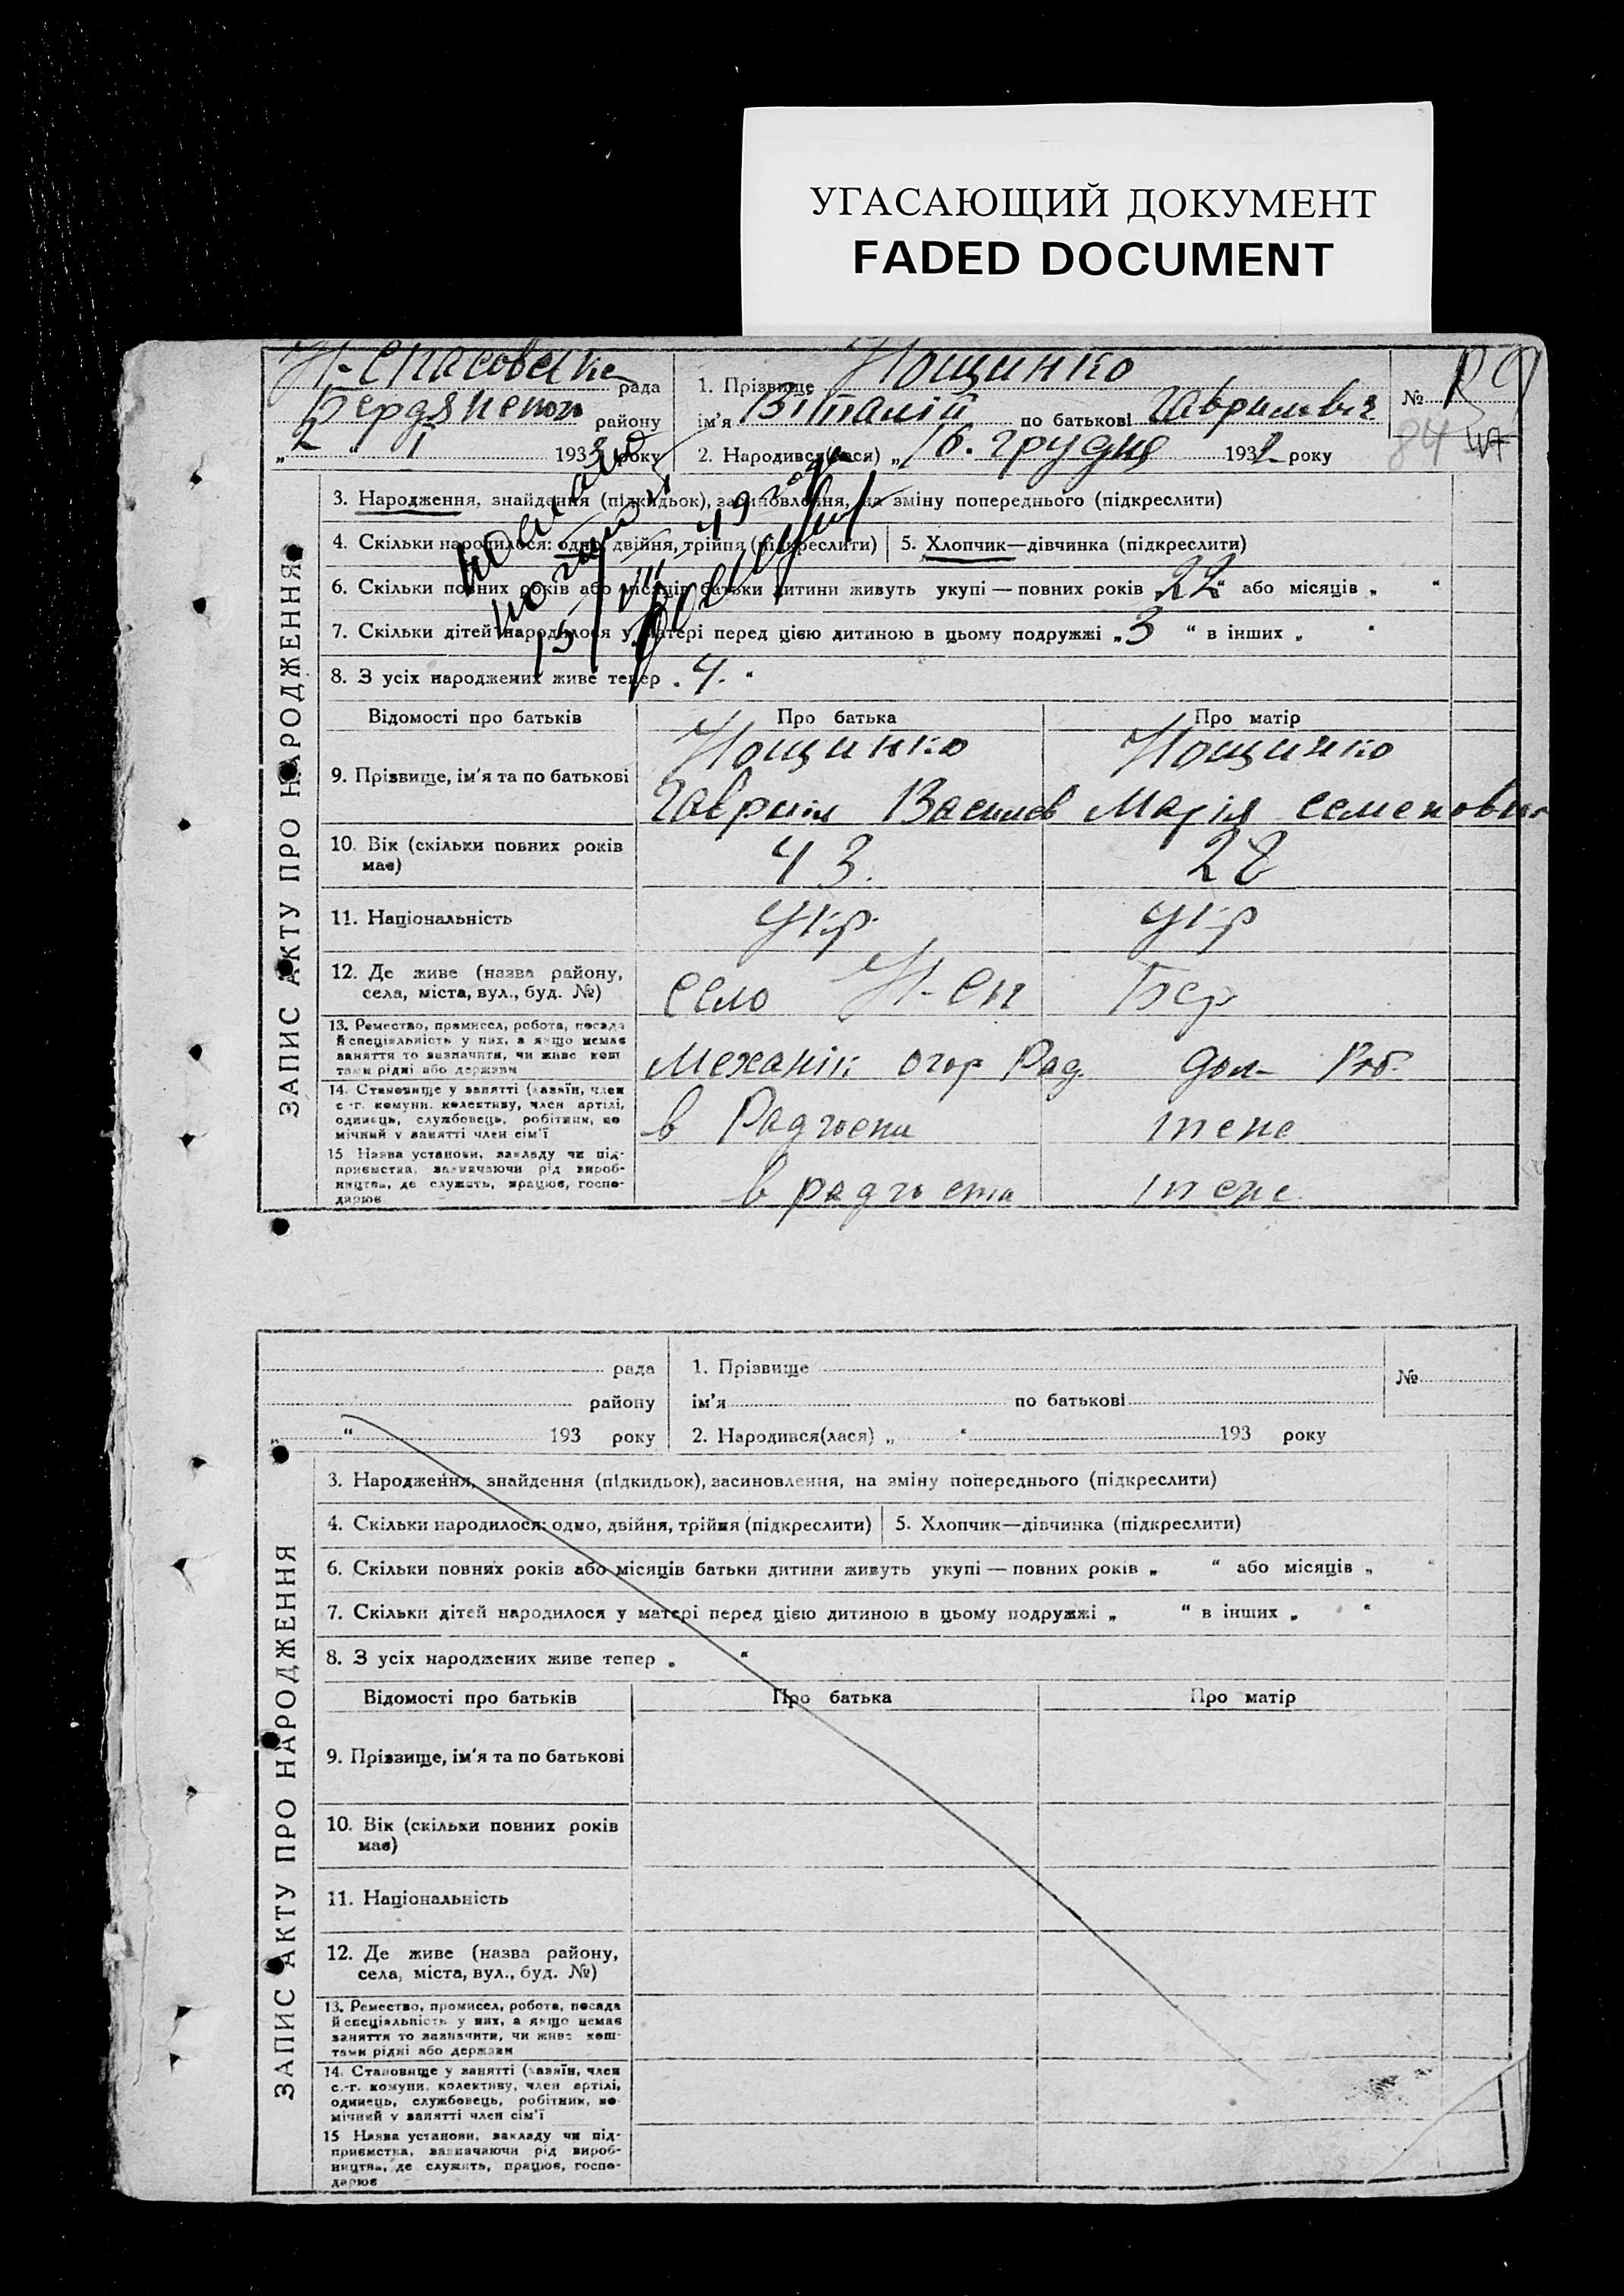 УГАСАЮЩИЙ ДОКУМЕНТ
FADED DOCUMENT
Н-Спасовська рада
Бердянского району
„ 2 “ I 1933 року
1. Прізвище Нощинко
ім'я Віталій по батькові Гаврилович
2. Народився(лася) „ 16. грудня 1932 року
№
84
ЗАПИС АКТУ ПРО НАРОДЖЕННЯ
3. Народження, знайдення (підкидьок), засиновлення, на зміну попереднього (підкреслити)
4. Скільки народилося: одно, двійня, трійня (підкреслити) 5. Хлопчик—дівчинка (підкреслити)
6. Скільки повних років або місяців батьки дитини живуть укупі — повних років „ 22 “ або місяців „ “
7. Скільки дітей народилося у матері перед цією дитиною в цьому подружжі „ 3 “ в інших „ “
8. З усіх народжених живе тепер „ 4. “
Відомості про батьків Про батька Про матір
9. Прізвище, ім'я та по батькові
Нощинко Нощинко
Гаврил Васильев Марія Семеновна
10. Вік (скільки повних років має) 43. 28
11. Національність укр. укр
12. Де живе (назва району, села, міста, вул., буд. №) село Н-Сп Бер
13. Ремество, промисел, робота, посада й спеціяльність у них, а якщо немає заняття то зазначити, чи живе коштами рідні або держави
Механік огор Рад. дом- Роб.
14. Становище у занятті (хазяїн, член с.-г. комуни, колективу, член артілі, одинець, службовець, робітник, помічний у занятті член сім'ї
в Радгоспи
15 Назва установи, закладу чи підприємства, зазначаючи рід виробництва, де служить, працює, господарює
в радгоспа
рада
району
„ “ 193 року
1. Прізвище
ім'я по батькові
2. Народився(лася) „ “ 193 року
№
ЗАПИС АКТУ ПРО НАРОДЖЕННЯ
3. Народження, знайдення (підкидьок), засиновлення, на зміну попереднього (підкреслити)
4. Скільки народилося: одно, двійня, трійня (підкреслити) 5. Хлопчик—дівчинка (підкреслити)
6. Скільки повних років або місяців батьки дитини живуть укупі — повних років „ “ або місяців „ “
7. Скільки дітей народилося у матері перед цією дитиною в цьому подружжі „ “ в інших „ “
8. З усіх народжених живе тепер „ “
Відомості про батьків Про батька Про матір
9. Прізвище, ім'я та по батькові
10. Вік (скільки повних років
має)
11. Національність
12. Де живе (назва району,
села, міста, вул., буд. №)
13. Ремество, промисел, робота, посада
й спеціяльність у них, а якщо немає
заняття то зазначити, чи живе кош-
тами рідні або держави
14. Становище у занятті (хазяїн, член
с.-г. комуни, колективу, член артілі,
одинець, службовець, робітник, по-
мічний у занятті член сім'ї
15 Назва установи, закладу чи під-
приємства, зазначаючи рід вироб-
ництва, де служить, працює, госпо-
дарює